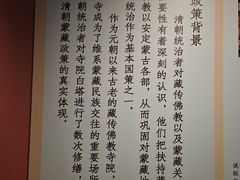 政策背景
清朝统治者对藏传佛教以及蒙藏关
要性有着深刻的认识，他们把扶持藏
教以安定蒙古各部，从而巩固对蒙藏地
统治作为基本国策之一。
作为元朝以来古老的藏传佛教寺院，
寺成为了维系蒙藏民族交往的重要场所
朝统治者对寺院白塔进行了数次修缮，
清朝蒙藏政策的真实体现。